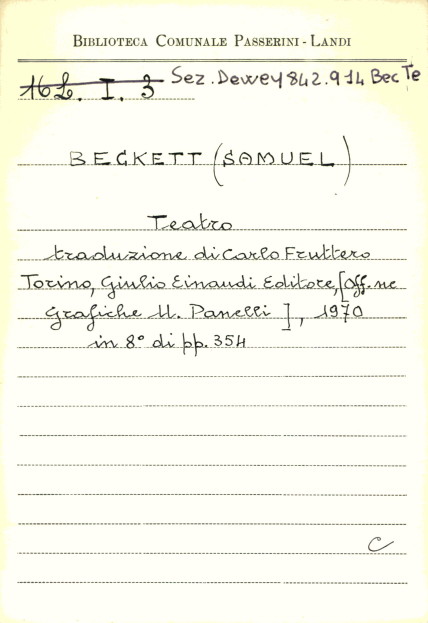 BIBLIOTECA COMUNALE PASSERINI - LANDI
16 L. I. 3 Sez. Dewey 842.914 Bec Te
BECKETT (SAMUEL)
Teatro
traduzione di Carlo Fruttero
Torino, Giulio Einaudi Editore, [Off.ne
Grafiche U. Panelli], 1970
in 8° di pp. 354
C